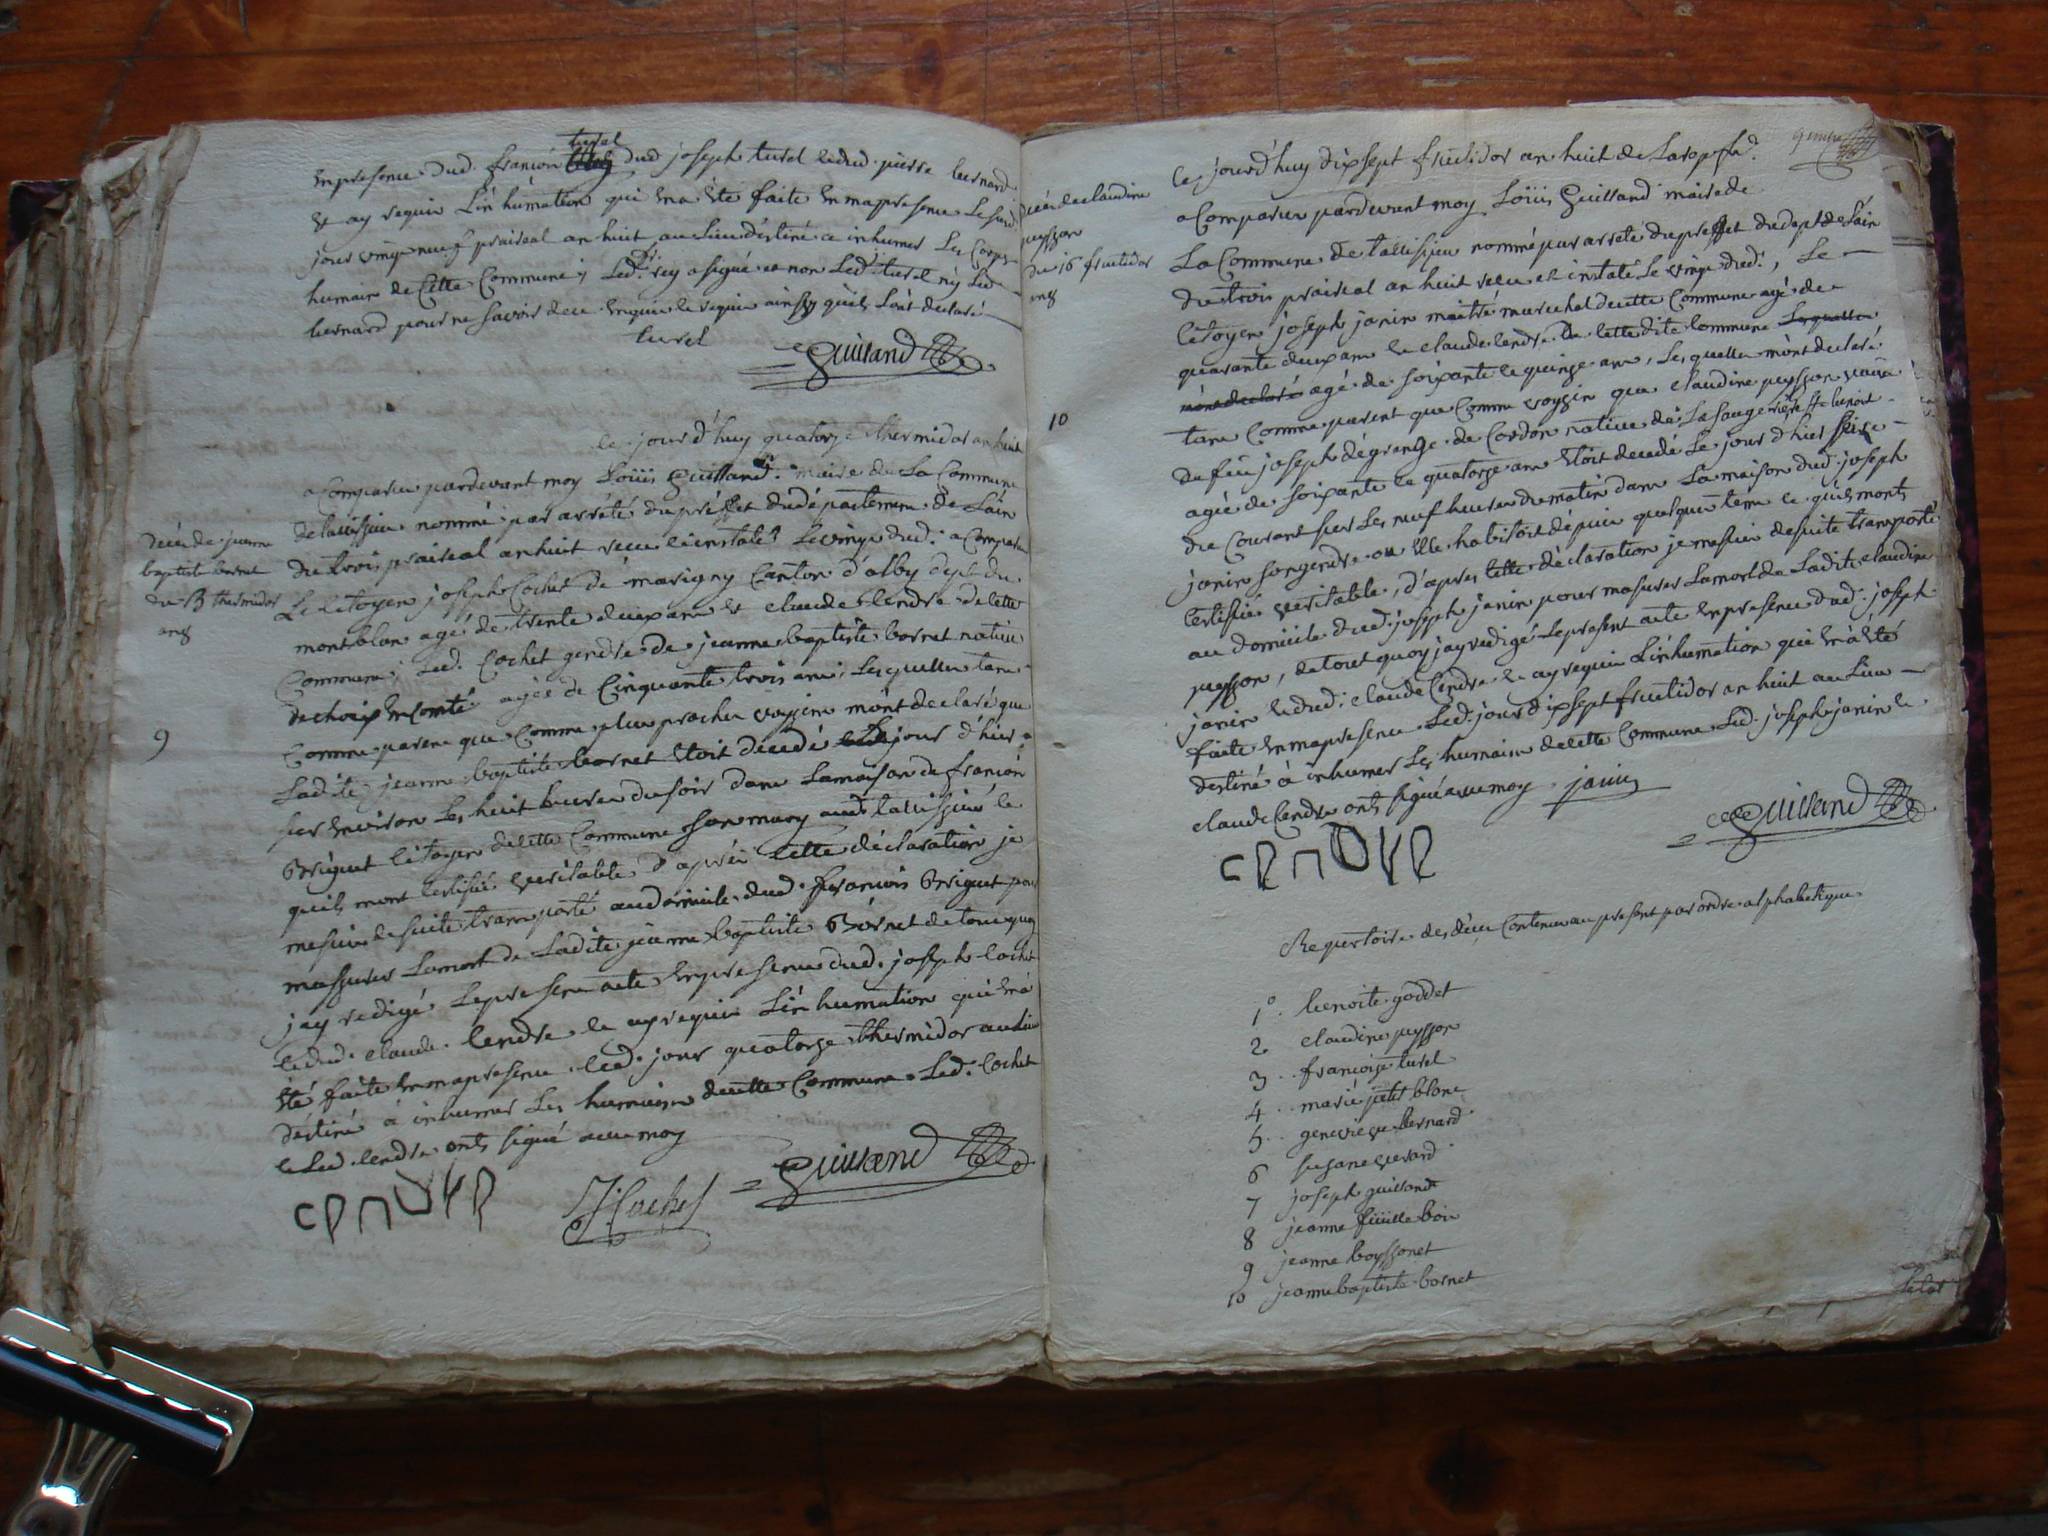 turel
en presence dud. françois dud joseph turel ledud. pierre bernard
& ay requis L'inhumation qui ma été faite en ma presence Le susd
jour vingt neuf prairial an huit au Lieu destiné a inhumer Les Corps
humains de Cette Commune; Led. a signé et non Led. turel ny Led
bernard pour ne savoir de ce enquis le requis ainsy quils L'ont declaré
turel
Guilland
ce jourd'huy quatorze thermidor an huit
a Comparu pardevant moy Loüis Guilland. maire de La Commune
de tallissieu nommé par arrété du préfet du département de L'ain
du trois prairial an huit reçu et installé Le vingt dud: a Comparu
Le Citoyen joseph Cochet de marigny Canton d'alby dept du
montblan agé de trente deux ans & claude Cendre de Cette
Commune; Led. Cochet gendre de jeanne baptiste bornet native
de choix en Comté agée de Cinquante trois ans; Lesquells tans
Comme parens que Comme plus proches voysins m'ont declaré que
Ladite jeanne baptiste bornet étoit decedé jour d'hier
sur environ Les huit heures du soir dans La maison de françois
Briguet Citoyen de Cette Commune son mary tallissieu le
quils mont Certifié veritable d'après Cette déclaration je
me suis de suite transporté au domicile dud. francois Briguet pour
massurer La mort de Ladite jeanne baptiste Bornet de tout quoy
jay redigé Le present acte en presence dud. joseph Cochet
ledud. claude Cendre le ay requis L'inhumation qui m'a
été faite en ma presence led. jour quatorze thermidor au lieu
destiné à inhumer Les humains de Cette Commune Led. Cochet
& Led. Cendre ont signé avec moy
cendre
J Cochet
Guilland
decés de jeanne
baptiste bornet
du 13 thermidor
an 8
9
decés de claudine
peysson
du 16 fructidor
an 8
10
Ce jourd'huy dix sept fructidor an huit de La rep. f.
a Comparu pardevant moy Loüis Guilland maire de
La Commune de tallissieu nommé par arrété du prefet du dept de L'ain
du trois prairial an huit reçu et installé Le vingt dud:, Le
Citoyen joseph janin maitre marechal de cette Commune agé de
quarante deux ans & claude Cendre de Cette dite Commune Lesquells
mont declaré agé de soixante le quinze ans, Lesquells m'ont declaré
tans Comme parent que Comme voysin que claudine peysson veuve
de feu joseph dégrange de Cordon native de
agée de soixante le quatorze ans étoit decedé Le jour d'hier seize
du Courant sur Les neuf heures du matin dans La maison dud. joseph
janin son gendre ou elle habitoit depuis quelque tems ce quils monts
Certifié veritable, d'apres Cette déclaration je me suis de suite transporté
au domicile dud. joseph janin pour massurer La mort de Ladite claudine
peysson, de tout quoy jay redigé Le present acte en presence dud: joseph
janin ledud: claude Cendre le ay requis L'inhumation qui m'a été
faite en ma presence Led: jour dix sept fructidor an huit au Lieu
destiné à inhumer Les humains de Cette Commune Led. joseph janin le
claude Cendre ont signé avec moy janin
cendre
Guilland
Repertoire des décés Contenu au present par ordre alphabetique
1º. benoite goddet
2 claudine peysson
3 françoise turel
4 marie petit blanc
5 genevieve bernard
6 susane verard
7 joseph guilland
8 jeanne füille bois
9 jeanne boyssonet
10 jeanne baptiste bornet